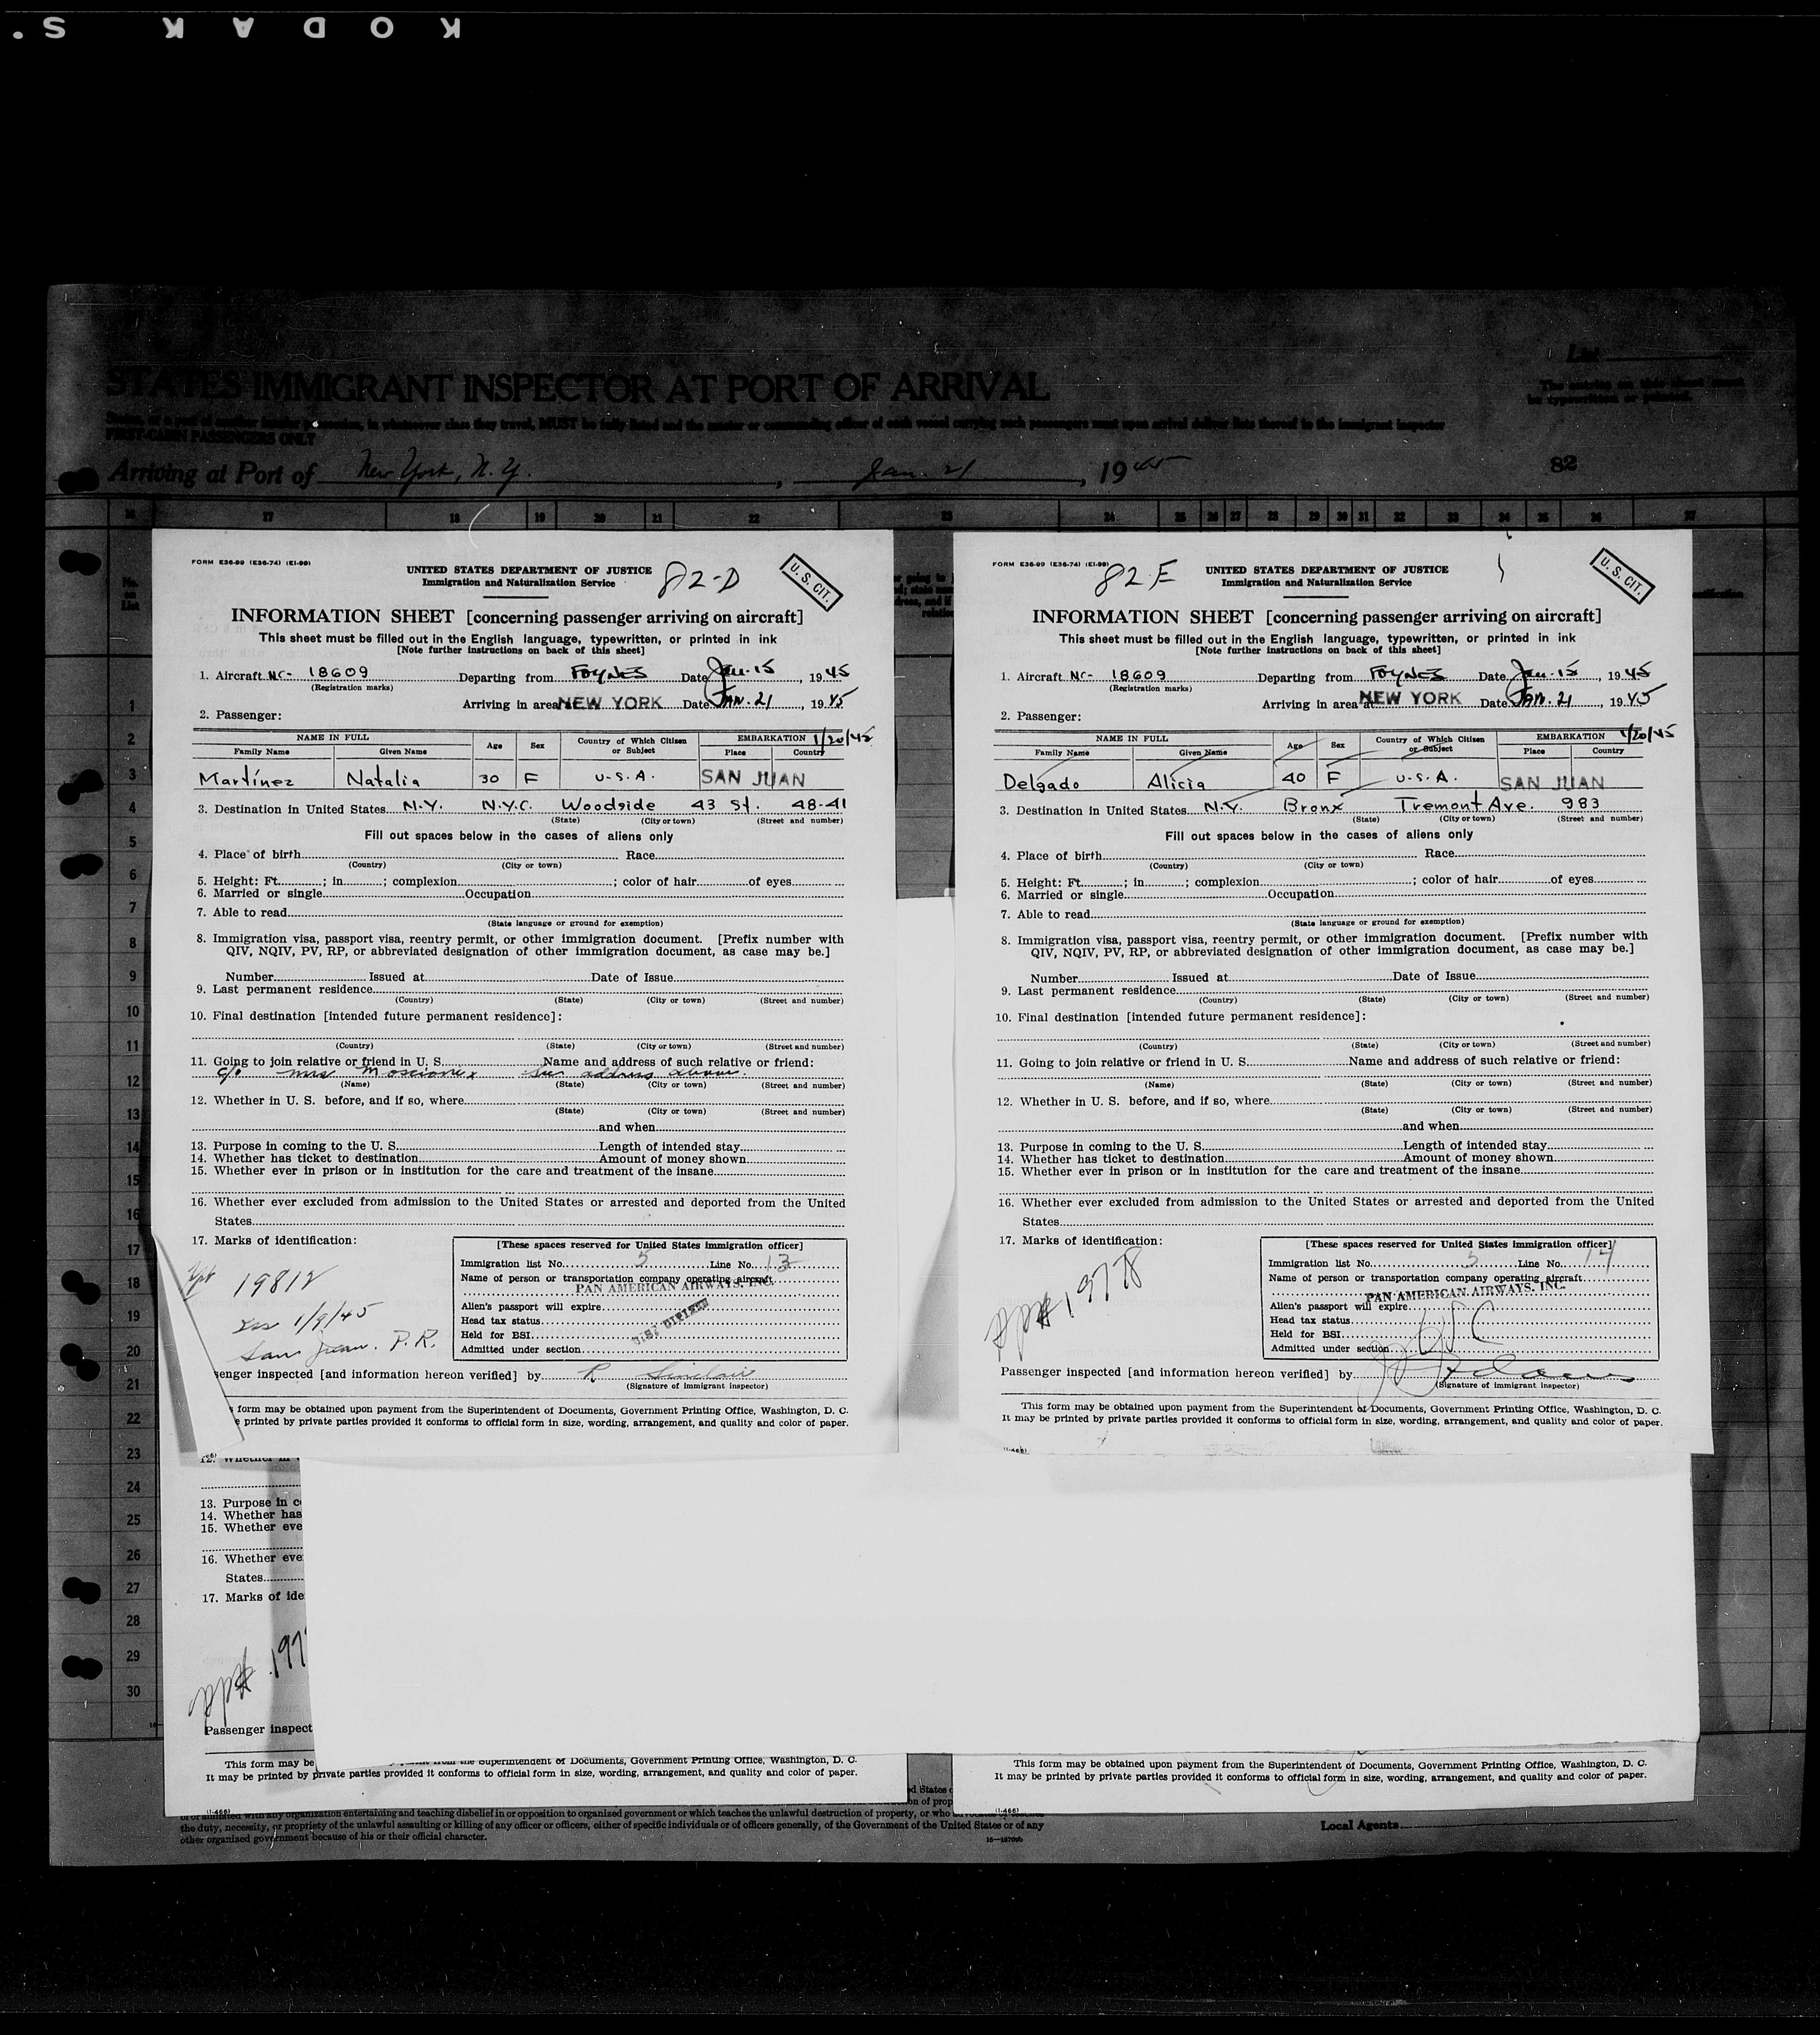 KODAK S.
List
STATES IMMIGRANT INSPECTOR AT PORT OF ARRIVAL
FIRST-CABIN PASSENGERS ONLY
Arriving at Port of New York, N.Y. , Jan. 21 , 1945
82
16 17 18 19 20 21 22 23 24 25 26 27 28 29 30 31 32 33 34 35 36 37
No. on List
1
2
3
4
5
6
7
8
9
10
11
12
13
14
15
16
17
18
19
20
21
22
23
24
25
26
27
28
29
30
FORM E36-99 (E36-74) (EI-99)
82-D
U. S. CIT.
UNITED STATES DEPARTMENT OF JUSTICE
Immigration and Naturalization Service
INFORMATION SHEET [concerning passenger arriving on aircraft]
This sheet must be filled out in the English language, typewritten, or printed in ink
[Note further instructions on back of this sheet]
1. Aircraft NC- 18609 Departing from FOYNES Date Jan. 15, 1945
(Registration marks)
Arriving in area NEW YORK Date JAN. 21, 1945
2. Passenger:
NAME IN FULL Age Sex Country of Which Citizen or Subject EMBARKATION 1/20/45
Family Name Given Name Place Country
Martínez Natalia 30 F U.S.A. SAN JUAN
3. Destination in United States N.Y. N.Y.C. Woodside 43 St. 48-41
(State) (City or town) (Street and number)
Fill out spaces below in the cases of aliens only
4. Place of birth Race
(Country) (City or town)
5. Height: Ft. ; in. ; complexion ; color of hair of eyes
6. Married or single Occupation
7. Able to read
(State language or ground for exemption)
8. Immigration visa, passport visa, reentry permit, or other immigration document. [Prefix number with
QIV, NQIV, PV, RP, or abbreviated designation of other immigration document, as case may be.]
Number Issued at Date of Issue
9. Last permanent residence
(Country) (State) (City or town) (Street and number)
10. Final destination [intended future permanent residence]:
(Country) (State) (City or town) (Street and number)
11. Going to join relative or friend in U. S. Name and address of such relative or friend:
c/o Mrs address above.
(Name) (State) (City or town) (Street and number)
12. Whether in U. S. before, and if so, where
(State) (City or town) (Street and number)
and when
13. Purpose in coming to the U. S. Length of intended stay
14. Whether has ticket to destination Amount of money shown
15. Whether ever in prison or in institution for the care and treatment of the insane
16. Whether ever excluded from admission to the United States or arrested and deported from the United
States
17. Marks of identification:
[These spaces reserved for United States immigration officer]
Immigration list No. 5 Line No. 13
Name of person or transportation company operating aircraft
PAN AMERICAN AIRWAYS, INC.
Alien's passport will expire
Head tax status
Held for BSI
Admitted under section
U.S. CITIZEN
19812
1/9/45
San Juan. P.R.
senger inspected [and information hereon verified] by R Sinclair
(Signature of immigrant inspector)
form may be obtained upon payment from the Superintendent of Documents, Government Printing Office, Washington, D. C.
e printed by private parties provided it conforms to official form in size, wording, arrangement, and quality and color of paper.
FORM E36-99 (E36-74) (EI-99)
82 E
U. S. CIT.
UNITED STATES DEPARTMENT OF JUSTICE
Immigration and Naturalization Service
INFORMATION SHEET [concerning passenger arriving on aircraft]
This sheet must be filled out in the English language, typewritten, or printed in ink
[Note further instructions on back of this sheet]
1. Aircraft NC- 18609 Departing from FOYNES Date Jan. 15, 1945
(Registration marks)
Arriving in area at NEW YORK Date JAN. 21, 1945
2. Passenger:
NAME IN FULL Age Sex Country of Which Citizen or Subject EMBARKATION 1/20/45
Family Name Given Name Place Country
Delgado Alicia 40 F U.S.A. SAN JUAN
3. Destination in United States N.Y. Bronx Tremont Ave. 983
(State) (City or town) (Street and number)
Fill out spaces below in the cases of aliens only
4. Place of birth Race
(Country) (City or town)
5. Height: Ft. ; in. ; complexion ; color of hair of eyes
6. Married or single Occupation
7. Able to read
(State language or ground for exemption)
8. Immigration visa, passport visa, reentry permit, or other immigration document. [Prefix number with
QIV, NQIV, PV, RP, or abbreviated designation of other immigration document, as case may be.]
Number Issued at Date of Issue
9. Last permanent residence
(Country) (State) (City or town) (Street and number)
10. Final destination [intended future permanent residence]:
(Country) (State) (City or town) (Street and number)
11. Going to join relative or friend in U. S. Name and address of such relative or friend:
(Name) (State) (City or town) (Street and number)
12. Whether in U. S. before, and if so, where
(State) (City or town) (Street and number)
and when
13. Purpose in coming to the U. S. Length of intended stay
14. Whether has ticket to destination Amount of money shown
15. Whether ever in prison or in institution for the care and treatment of the insane
16. Whether ever excluded from admission to the United States or arrested and deported from the United
States
17. Marks of identification:
[These spaces reserved for United States immigration officer]
Immigration list No. 5 Line No. 14
Name of person or transportation company operating aircraft
PAN AMERICAN AIRWAYS, INC.
Alien's passport will expire
Head tax status
Held for BSI
Admitted under section
USC
pp# 19778
Passenger inspected [and information hereon verified] by
(Signature of immigrant inspector)
This form may be obtained upon payment from the Superintendent of Documents, Government Printing Office, Washington, D. C.
It may be printed by private parties provided it conforms to official form in size, wording, arrangement, and quality and color of paper.
(I-466)
13. Purpose in c
14. Whether has
15. Whether eve
16. Whether eve
States
17. Marks of ide
pp# 197
Passenger inspect
This form may be from the Superintendent of Documents, Government Printing Office, Washington, D. C.
It may be printed by private parties provided it conforms to official form in size, wording, arrangement, and quality and color of paper.
(I-466)
This form may be obtained upon payment from the Superintendent of Documents, Government Printing Office, Washington, D. C.
It may be printed by private parties provided it conforms to official form in size, wording, arrangement, and quality and color of paper.
(I-466)
the duty, necessity, or propriety of the unlawful assaulting or killing of any officer or officers, either of specific individuals or of officers generally, of the Government of the United States or of any
other organized government because of his or their official character.
Local Agents